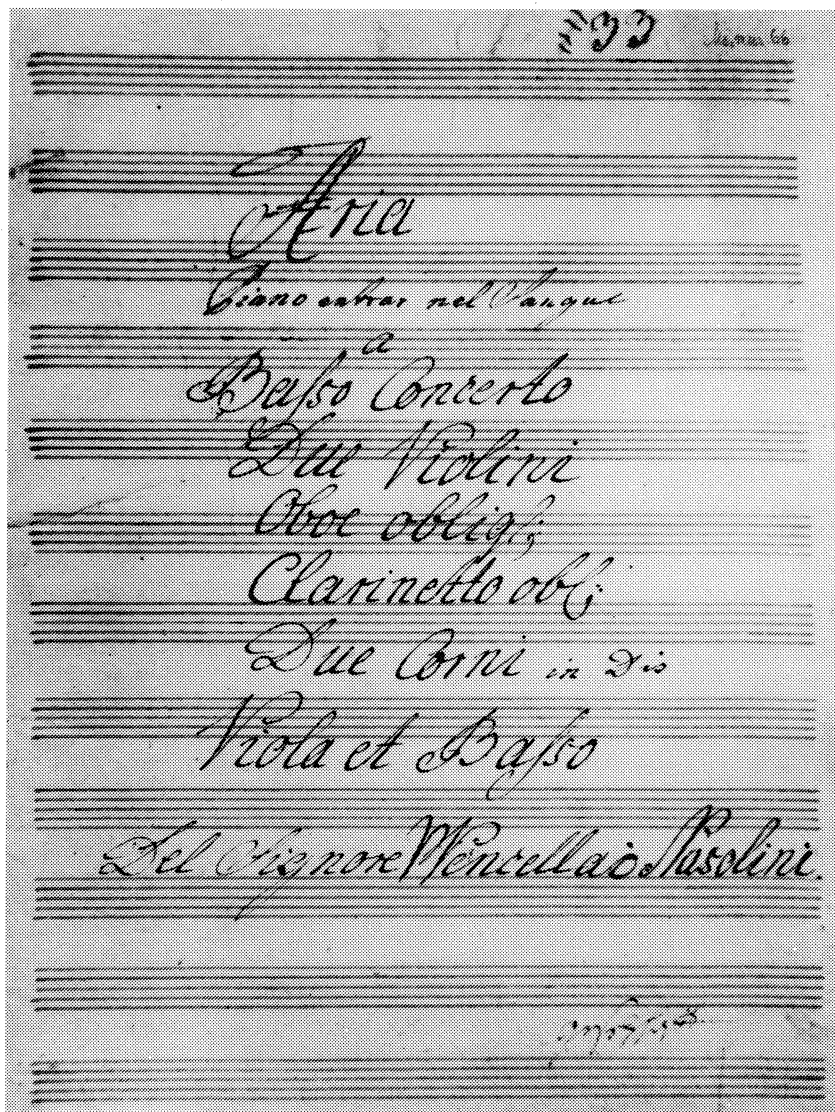 33
Aria
Piano entrar nel Sangue
a
Baſso Concerto
Due Violini
Oboe oblig:
Clarinetto obl:
Due Corni in Dis
Viola et Baſso
Del Signore Wencellaò Nasolini.